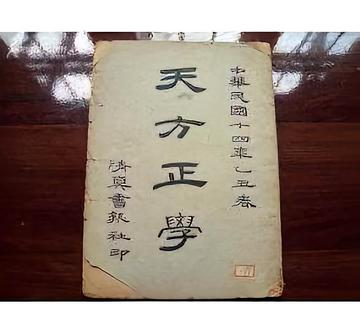 中華民國十四年乙丑春
天方正學
清真書報社印